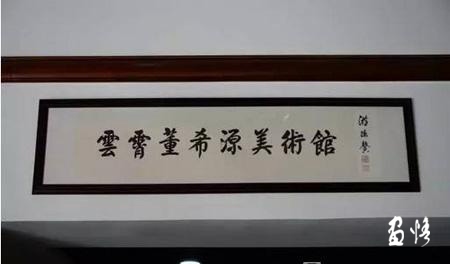 雲霄董希源美術館
游德馨
画悟